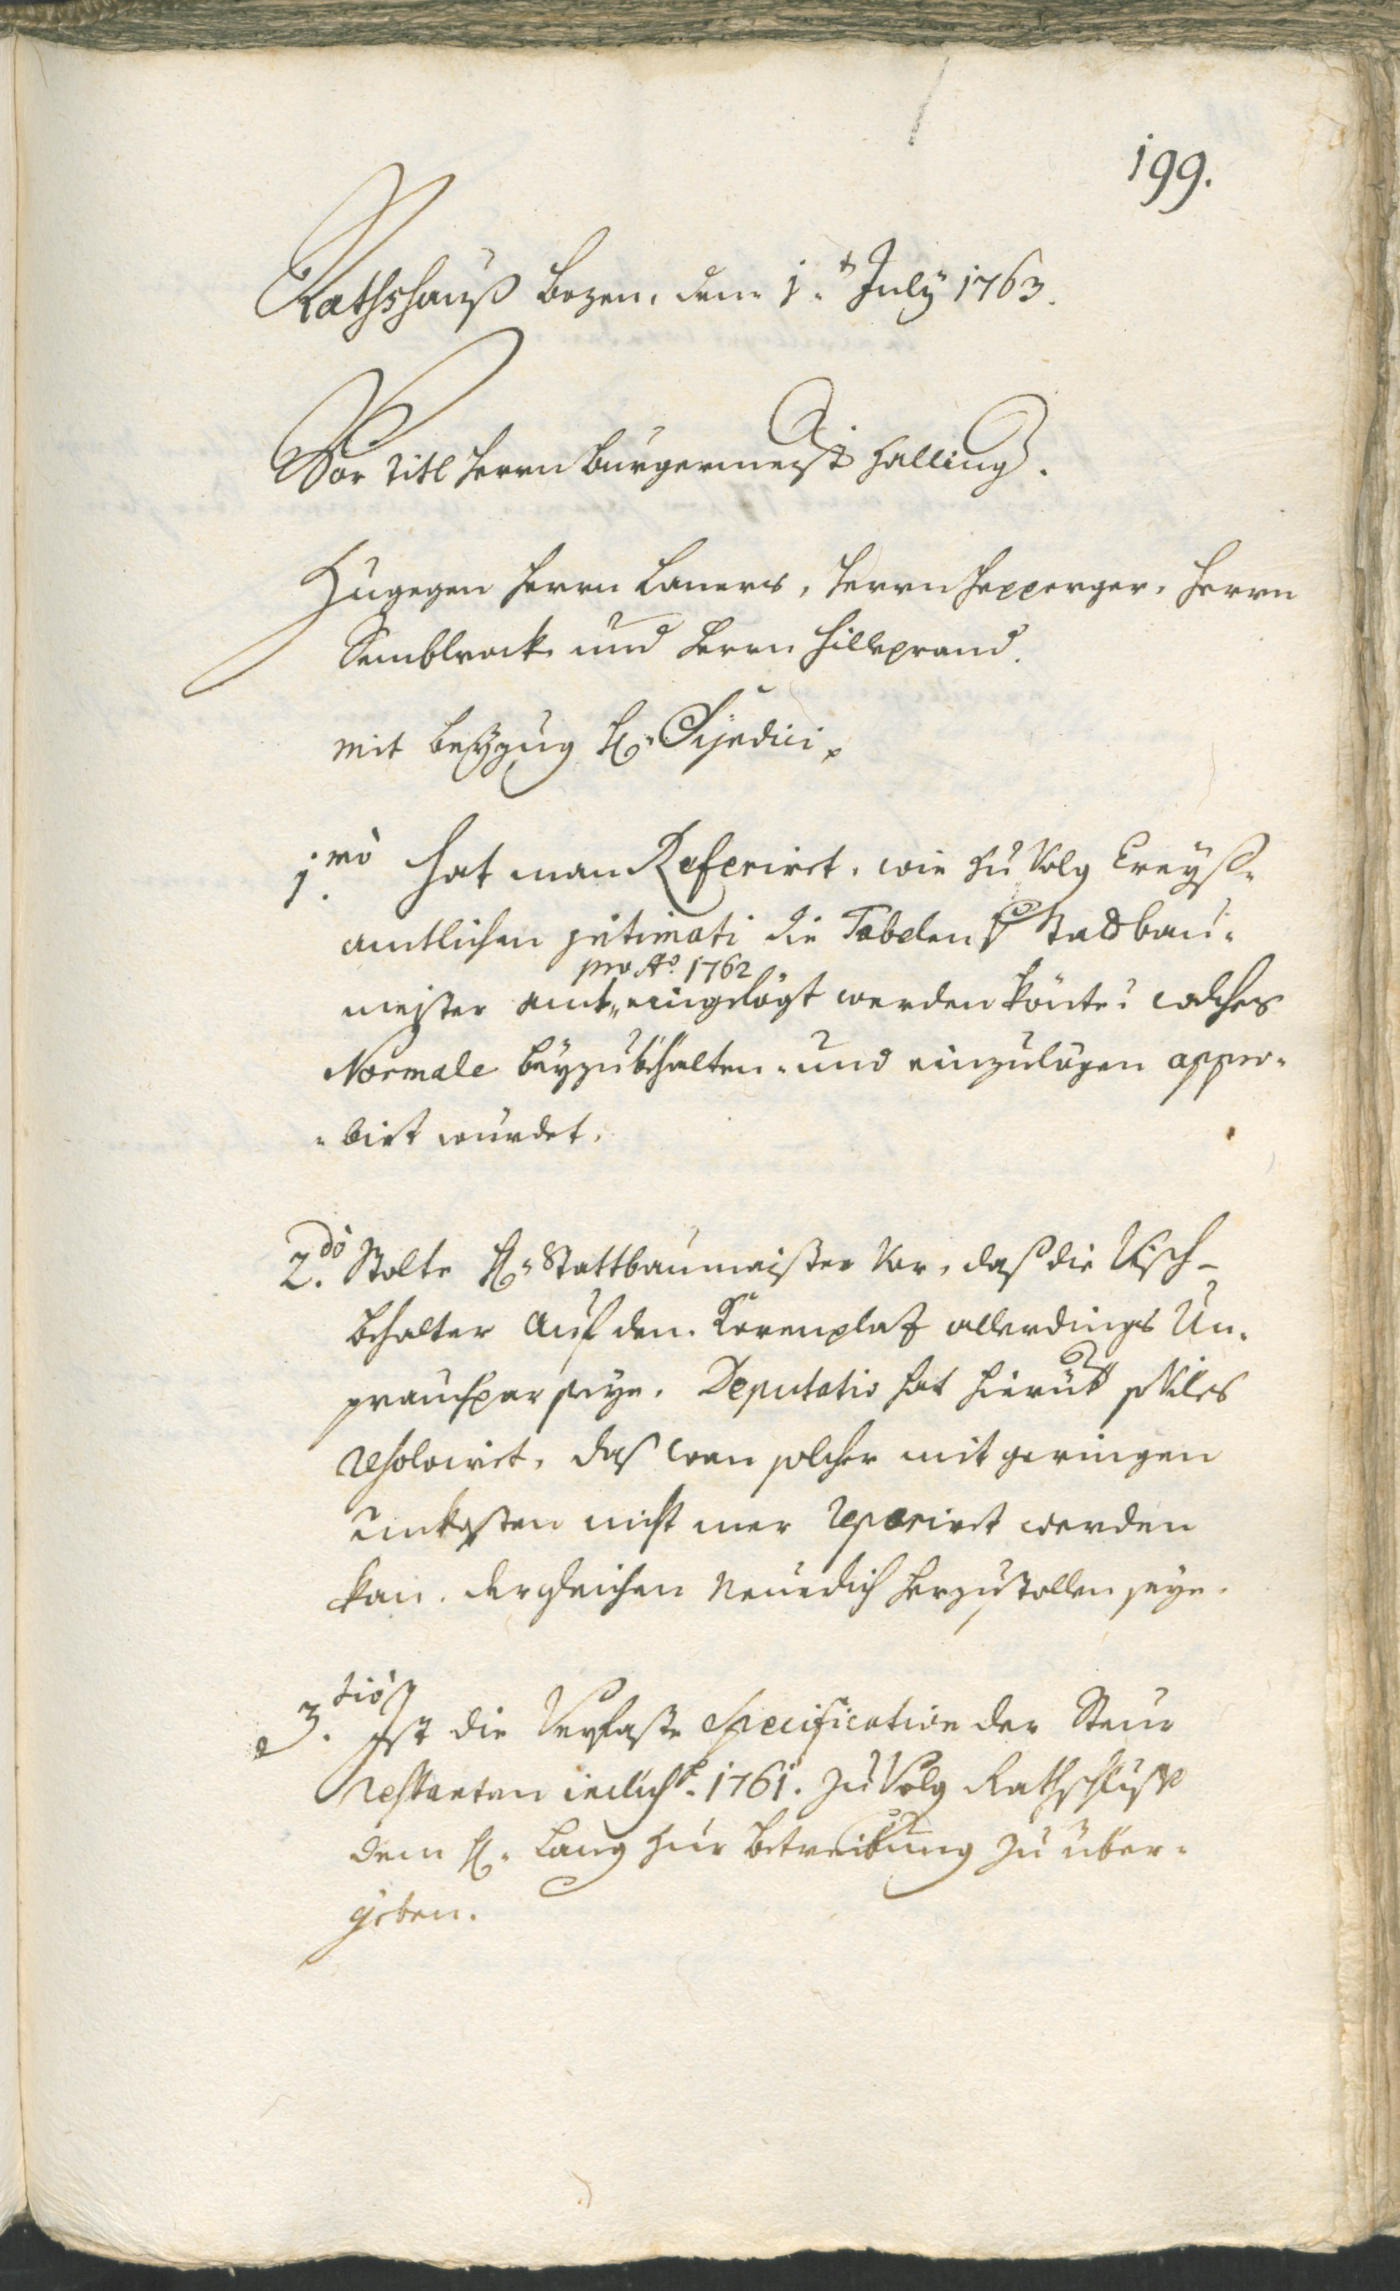 199.
Rathshauß Bozen, den 1.t July 1763.
Vor Titl Herrn Burgermeistr Halling.
Zugegen Herrn Laners, Herrn Hepperger, Herrn
Semblrock und Herrn Hilleprand.
mit beyzug H: Syndici
1.mo Hat man Referiret, wie zu Volg Creyß-
amtlichen jntimati die Tabelen Stadbau-
pro Ao. 1762
meister Amt eingelögt werden könte? welches
Normale beyzubehalten und einzulögen appro-
birt wurdet.
2.do Stolte H: Stattbaumeister Vor, daß die Visch-
bhalter Auf den Kornplaz allerdings Un-
prauchpar seye. Deputatio hat hierüber
resolvirt, daß wan solcher mit geringen
Unkosten nicht mer reparirt werden
kan, dergleichen Neuedich herzustollen seye.
3.tio Ist die Verfaste Specification der Steur
restanten 1761. zu Volg Rathschluß
dem H: Lang zur betreibung zu über-
geben.